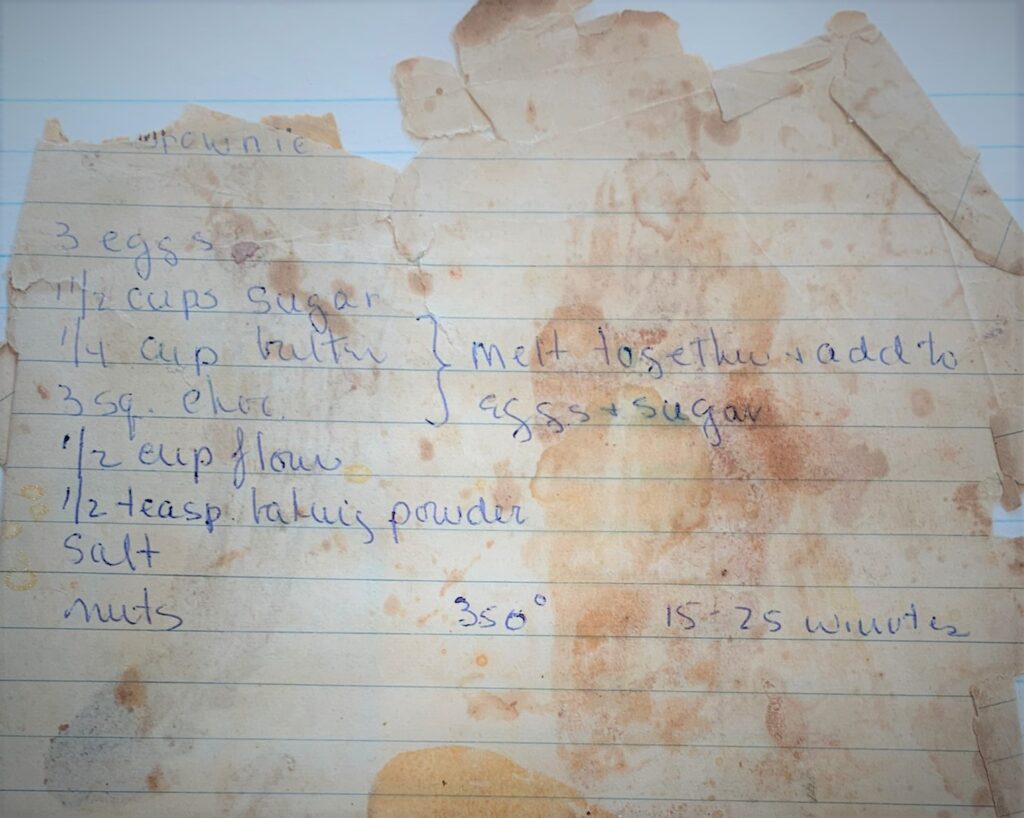 Brownie
3 eggs
1 1/2 cups sugar
1/4 cup butter } melt together + add to
3 sq. choc. eggs + sugar
1/2 cup flour
1/2 teasp. baking powder
Salt
nuts 350° 15-25 minutes